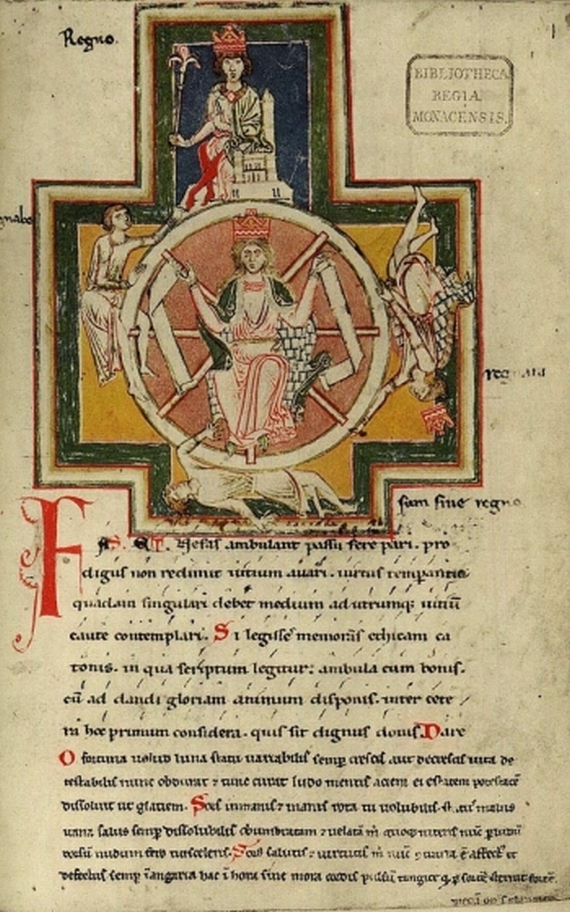 Regno.
BIBLIOTHECA
REGIA
MONACENSIS.
regnabo
sum sine regno
FAS ET Nefas ambulant passu fere pari. pro
digus non redimit uitium auari. uirtus temperantia
quadam singulari debet medium ad utrumq; uitiū
caute contemplari. Si legisse memoras ethicam ca
tonis. in qua scriptum legitur: ambula cum bonis.
cū ad dandi gloriam animum disponis. inter cete
ra hoc primum considera. quis sit dignus donis. Dare
O fortuna uelud luna statu uariabilis semp crescis aut decrescis uita de
testabilis nunc obdurat 7 tunc curat ludo mentis aciem egestatem potestatē
dissoluit ut glaciem. Sors inmanis 7 inanis rota tu uolubilis status malus
uana salus semp dissolubilis obumbratam 7 uelatā m quoq; niteris nūc p ludū
dorsū nudum fero tui sceleris. Sors salutis 7 uirtutis m nūc ē affect
defectus semp in angaria hac i hora sine mora